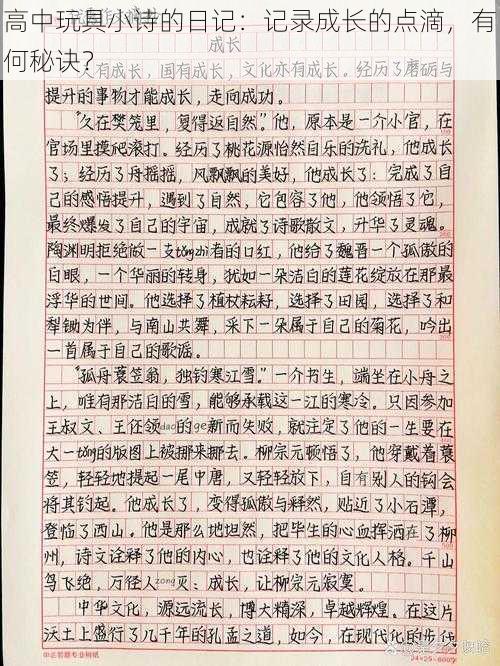 高中玩具小诗的日记：记录成长的点滴，有
何秘诀？
成长
人有成长，国有成长，文化亦有成长。经历了磨砺与
提升的事物才能成长，走向成功。
“久在樊笼里，复得返自然。”他，原本是一个小官，在
官场里摸爬滚打。经历了桃花源怡然自乐的洗礼，他成长
了；经历了舟摇摇，风飘飘的美好，他成长了：完成了自
己的感悟提升，遇到了自然，它包容了他，他领悟了它，
最终爆发了自己的宇宙，成就了诗歌散文，升华了灵魂。
陶渊明拒绝做一支tǒngzhì者的口红，他给了魏晋一个孤傲的
白眼，一个华丽的转身，犹如一朵洁白的莲花绽放在那最
浮华的世间。他选择了植杖耘耔，选择了田园，选择了和
犁锄为伴，与南山共舞，采下一朵属于自己的菊花，吟出
一首属于自己的歌谣。
“孤舟蓑笠翁，独钓寒江雪。”一个书生，端坐在小舟之
上，唯有那洁白的雪，能够承载这一江的寒冷。只因参加
王叔文、王伾领dao的ge新而失败，就注定了他的一生要在
大一tǒng的版图上被挪来挪去。柳宗元顿悟了，他穿戴着蓑
笠，轻轻地提起一尾中唐，又轻轻放下，自有别人的钩会
将其钓起。他成长了，变得孤傲与释然，贴近了小石潭，
登临了西山。他是那么地坦然，把毕生的心血挥洒在了柳
州，诗文诠释了他的内心，也诠释了他的文化人格。千山
鸟飞绝，万径人zong灭：成长，让柳宗元寂寞。
中华文化，源远流长，博大精深，卓越辉煌。在这片
沃土上盛行了几千年的孔孟之道，如今，在现代化的步伐
24×25=600